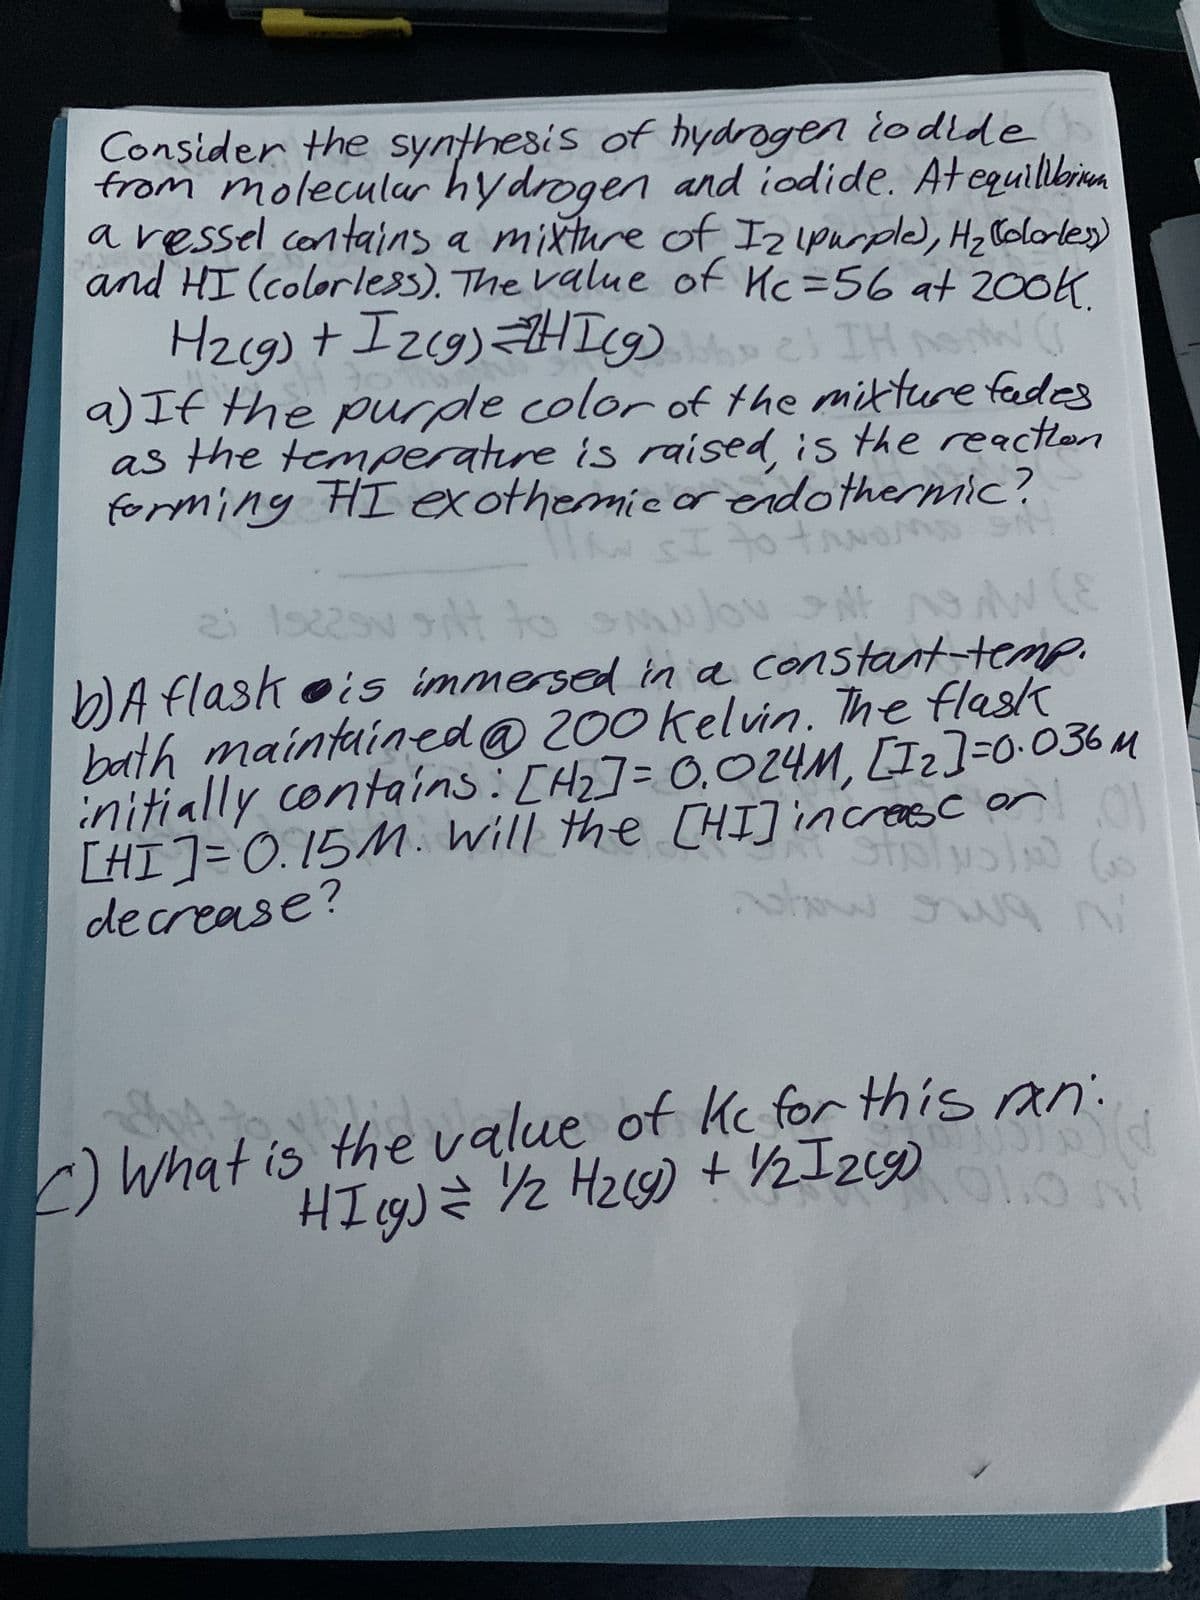 Consider the synthesis of hydrogen iodide
from molecular hydrogen and iodide. At equilibrium
a vessel contains a mixture of I2 (purple), H2 (colorless)
and HI (colorless). The value of Kc=56 at 200K.
H2(g) + I2(g) ⇌ 2HI(g)
a) If the purple color of the mixture fades
as the temperature is raised, is the reaction
forming HI exothermic or endothermic?
b) A flask is immersed in a constant-temp.
bath maintained @ 200 Kelvin. The flask
initially contains: [H2]= 0.024M, [I2]=0.036 M
[HI]= 0.15M. Will the [HI] increase or
decrease?
c) What is the value of Kc for this rxn:
HI(g) ⇌ 1/2 H2(g) + 1/2 I2(g)